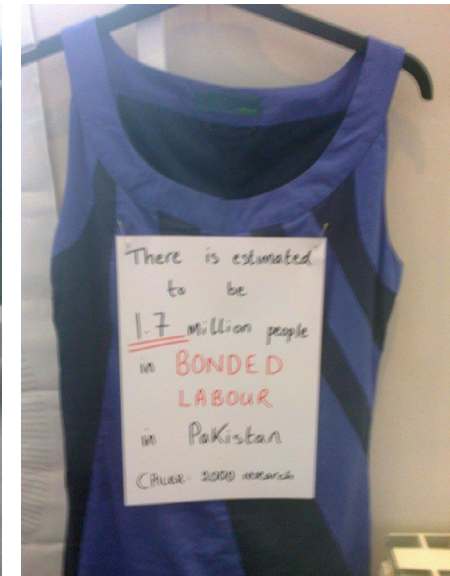 There is estimated
to be
1.7 million people
in BONDED
LABOUR
in Pakistan
(PILER: 2000 research